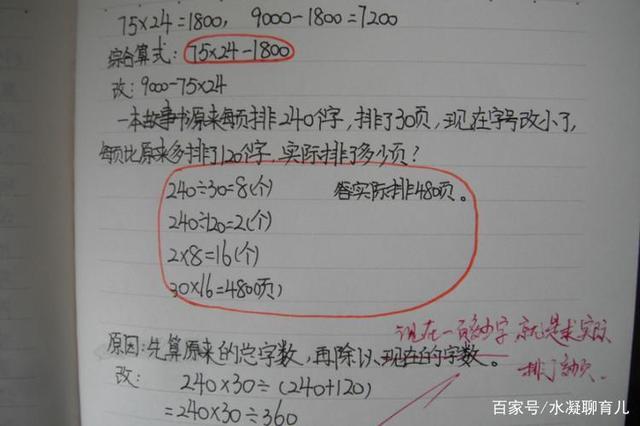 75×24=1800, 9000-1800=7200
综合算式: 75×24-1800
改: 9000-75×24
一本故事书原来每页排240个字,排了30页,现在字号改小了,
每页比原来多排了120个字.实际排了多少页?
240÷30=8(个) 答实际排480页。
240÷120=2(个)
2×8=16(个)
30×16=480(页)
现在一页多少字 就是求实际
原因:先算原来的总字数,再除以现在的字数。
排了
改: 240×30÷(240+120)
=240×30÷360
百家号/水凝聊育儿